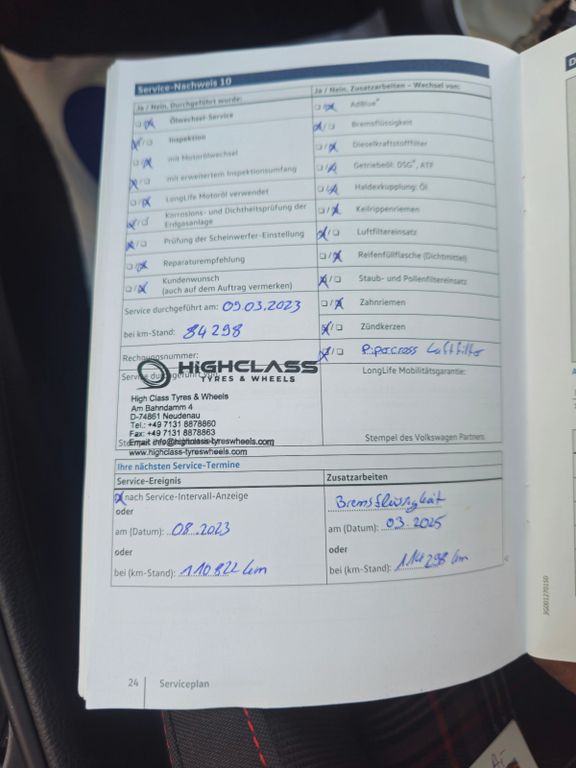 Service-Nachweis 10
Ja / Nein, Durchgeführt wurde:
Ölwechsel-Service
Inspektion
mit Motorölwechsel
mit erweitertem Inspektionsumfang
LongLife Motoröl verwendet
Korrosions- und Dichtheitsprüfung der
Erdgasanlage
Prüfung der Scheinwerfer-Einstellung
Reparaturempfehlung
Kundenwunsch
(auch auf dem Auftrag vermerken)
Service durchgeführt am: 09.03.2023
bei km-Stand: 84298
Rechnungsnummer:
HIGHCLASS
TYRES & WHEELS
Service durchgeführt von:
High Class Tyres & Wheels
Am Bahndamm 4
D-74861 Neudenau
Tel.: +49 7131 8878860
Fax: +49 7131 8878863
Email: info@highclass-tyreswheels.com
www.highclass-tyreswheels.com
Ja / Nein, Zusatzarbeiten – Wechsel von:
AdBlue®
Bremsflüssigkeit
Dieselkraftstofffilter
Getriebeöl: DSG®, ATF
Haldexkupplung: Öl
Keilrippenriemen
Luftfiltereinsatz
Reifenfüllflasche (Dichtmittel)
Staub- und Pollenfiltereinsatz
Zahnriemen
Zündkerzen
Pipercross Luftfilter
LongLife Mobilitätsgarantie:
Stempel des Volkswagen Partners
Ihre nächsten Service-Termine
Service-Ereignis
nach Service-Intervall-Anzeige
oder
am (Datum): 08.2023
oder
bei (km-Stand): 110822 km
Zusatzarbeiten
Bremsflüssigkeit
am (Datum): 03.2025
oder
bei (km-Stand): 114298 km
24 Serviceplan
3G0012701SO